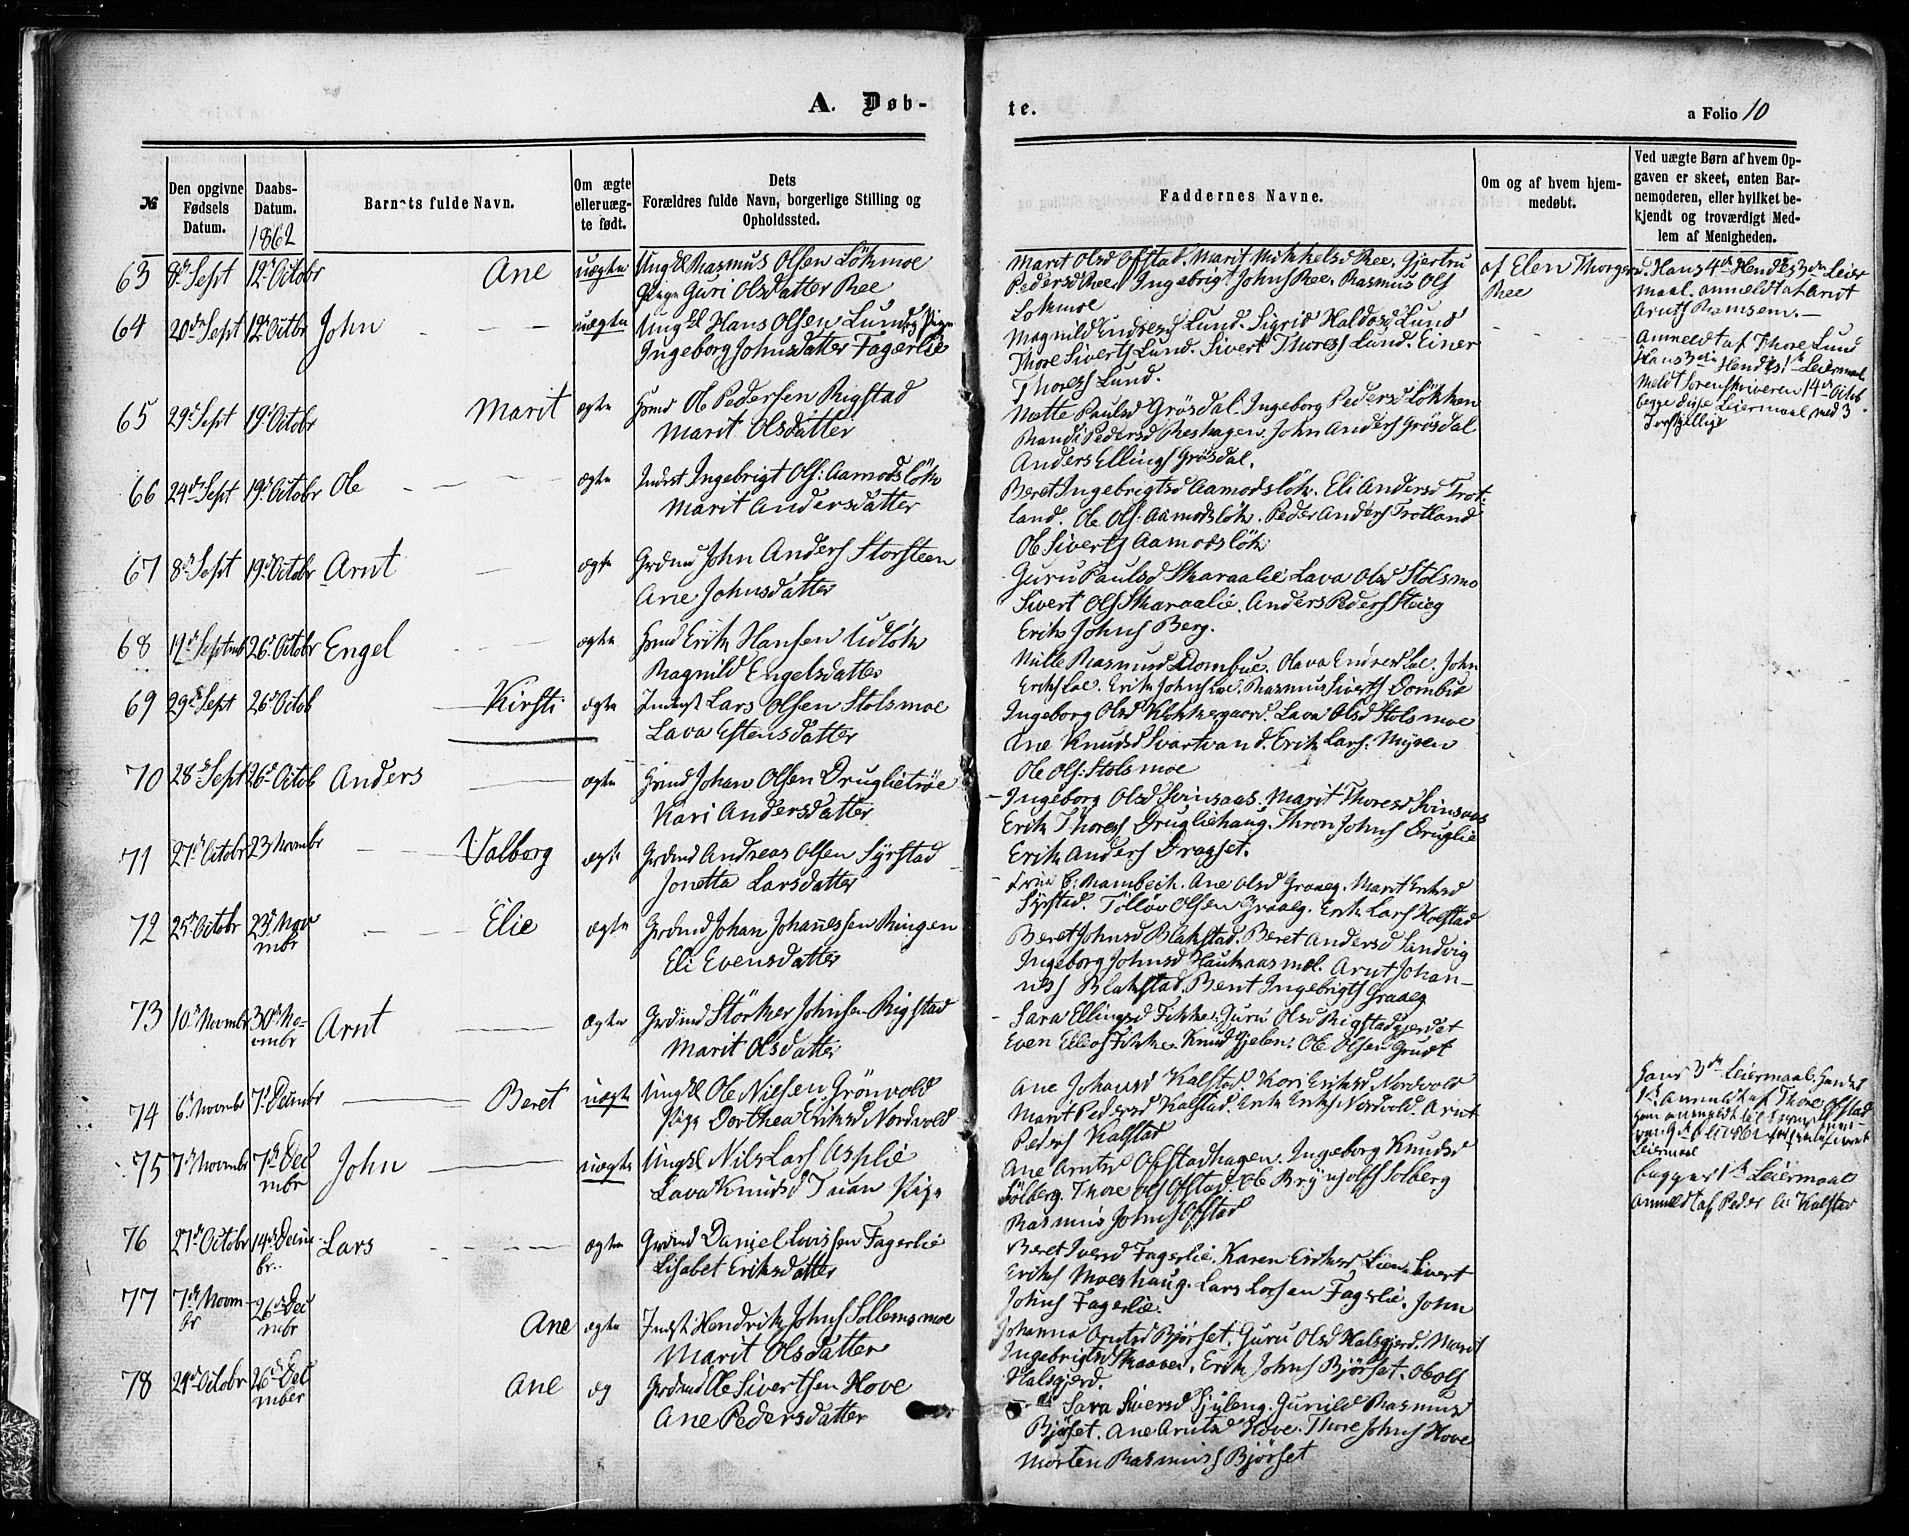 A. Døb-
te.
a Folio 10
№
Den opgivne Fødsels Datum.
Daabs-Datum.
1862
Barnets fulde Navn.
Om ægte eller uægte født.
Dets
Forældres fulde Navn, borgerlige Stilling og Opholdssted.
Faddernes Navne.
Om og af hvem hjemmedøbt.
Ved uægte Børn af hvem Opgaven er skeet, enten Barnemoderen, eller hvilket bekjendt og troværdigt Medlem af Menigheden.
63 8de Sept 12te Octobr Ane uægte Ungkl Rasmus Olsen Lökmoe
Pige Guri Olsdatter Ree
Marit Olsd Ofstad. Marit Mikkelsd Ree. Gjertru
Pedersd Ree. Ingebrigt Johns Ree. Rasmus Ols
Lökmoe
af Elen Thorgers
Ree
Hans 4de Hendes 3die Leier
maal. anmeldt af Arnt
Arnts Ramsem.
64 20de Sept 12te Octbr John uægte Ungkl Hans Olsen Lund og Pige
Ingeborg Johnsdatter Fagerlie
Magnild Endresd Lund. Sigrid Haldosd Lund
Thore Siverts Lund. Sivert Thoress Lund. Einer
Thoress Lund.
Anmeldt af Thore Lund
Hans 3die Hendes 1ste Leiermaal
meldt Sorenskriveren 14de Octob
begge disse Leiermaal med 3
Forskjellige
65 29de Sept 19de Octobr Marit ægte Grmd Ole Pedersen Rigstad
Marit Olsdatter
Mette Paulsd Grösdal. Ingeborg Pedersd Lökken
Randi Pedersd Reshagen. John Anders Grösdal
Anders Ellings Grösdal.
66 24de Sept 19de Octobr Ole ægte Inderst Ingebrigt Ols: Aamodslök
Marit Andersdatter
Beret Ingebrigtsd Aamodslök. Eli Andersd Trot
land. Ole Ols: Aamodslök. Peder Anders Trotland
Ole Siverts Aamodslök
67 8de Sept 19de Octobr Arnt ægte Grdmd John Anders Storsteen
Ane Johnsdatter
Guru Paulsd Skaraalie Lava Olsd Stolsmo
Sivert Ols Skaraalie. Anders Peders Stvieg
Erik Johns Berg.
68 17de Septmb 26de Octobr Engel ægte Hsmd Erik Hansen Udlök
Ragnild Engelsdatter
Mille Rasmusd Dombue. Olava Endresd Loe. John
Eriks Loe. Erik Johns Loe. Rasmus Siverts Dombue
69 29de Sept 26de Octob Kirsti ægte Inderst Lars Olsen Stolsmoe
Lava Estensdatter
Ingeborg Olsd Klokkergaard. Lava Olsd Stolsmoe
Ane Knudsd Svartvand. Erik Lars: Mysen
Ole Ols: Stolsmoe
70 28de Sept 26de Octob Anders ægte Hsmd Johan Olsen Druglietröe
Kari Andersdatter
Ingeborg Olsd Svinsaas. Marit Thoresd Svinsaas
Erik Thoress Drugliehaug. Thron Johns Druglie
Erik Anders Dragset.
71 27de Octobr 23 Novmbr Valborg ægte Grdmd Andreas Olsen Syrstad
Jonetta Larsdatter
Trine C: Rambech. Ane Olsd Graaeg. Marit Eriksd
Syrstad. Tölløv Olsen Graaeg. Erik Lars Holstad
72 25de Octobr 23de Nov
mbr Elie ægte Grdmd Johan Johannessen Ringen
Eli Evensdatter
Beret Johnsd Blakstad. Beret Andersd Sandvig
Ingeborg Johnsd Haukaasmel. Arnt Johan-
nes Blakstad. Bent Ingebrigts Graaeg
73 10de Novmbr 30de No-
vmbr Arnt ægte Grdmd Störker Johnsen Rigstad
Marit Olsdatter
Sara Ellingsd Fikke. Guru Olsd Rigstadgjerdet
Even Ellefs Fikke. Knud Gjelen. Ole Olsen Grudt
74 6te Novmbr 7de Decmbr Beret uægte Ungkl Ole Nilsen Grönvold
Pige Dorthea Eriksd Nordvold
Ane Johansd Kalstad. Kari Eriksd Nordvold
Marit Pedersd Kalstad. Erik Eriks Nordvold. Arnt
Peders Kalstad
Hans 3die Leiermaal. Hendes
1ste. Anmeldt af Thore Ofstad
Leiermaal
75 7de Novmbr 7de Dec
mbr John uægte Ungkl Nils Lars Asplie
Lava Knudsd Tuan Pige
Ane Arntsd Ofstadhagen. Ingeborg Knudsd
Sölberg. Thore Ols Ofstad. Ole Brynjolfs Solberg
Rasmus Johns Ofstad
begges 1ste Leiermaal
anmeldt af Peder A: Kalstad
76 27de Octobr 14de Decm
br. Lars ægte Grdmd Daniel Larssen Fagerlie
Lisabet Eriksdatter
Beret Iversd Fagerlie. Karen Eriksd Lien. Sivert
Eriks Moeshaug. Lars Larsen Fagerlie. John
Johns Fagerlie.
77 7de Novm
br 26de Dec
mbr Ane ægte Indst Hendrik Johns Sollemsmoe
Marit Olsdatter
Johanna Arntsd Bjørset. Guru Olsd Halsgjerd. Marit
Ingebrigtsd Skaaren. Erik Johns Bjørset. Ole Ols
Halsgjerd.
78 24de Octobr 26de Dec
mber Ane æg Grdmd Ole Sivertsen Hove
Ane Pedersdatter
Sara Siversd Sjuleng. Gunild Rasmusd
Bjørset. Ane Arntsd Hove. Thore Johns Hove
Morten Rasmus Bjørset